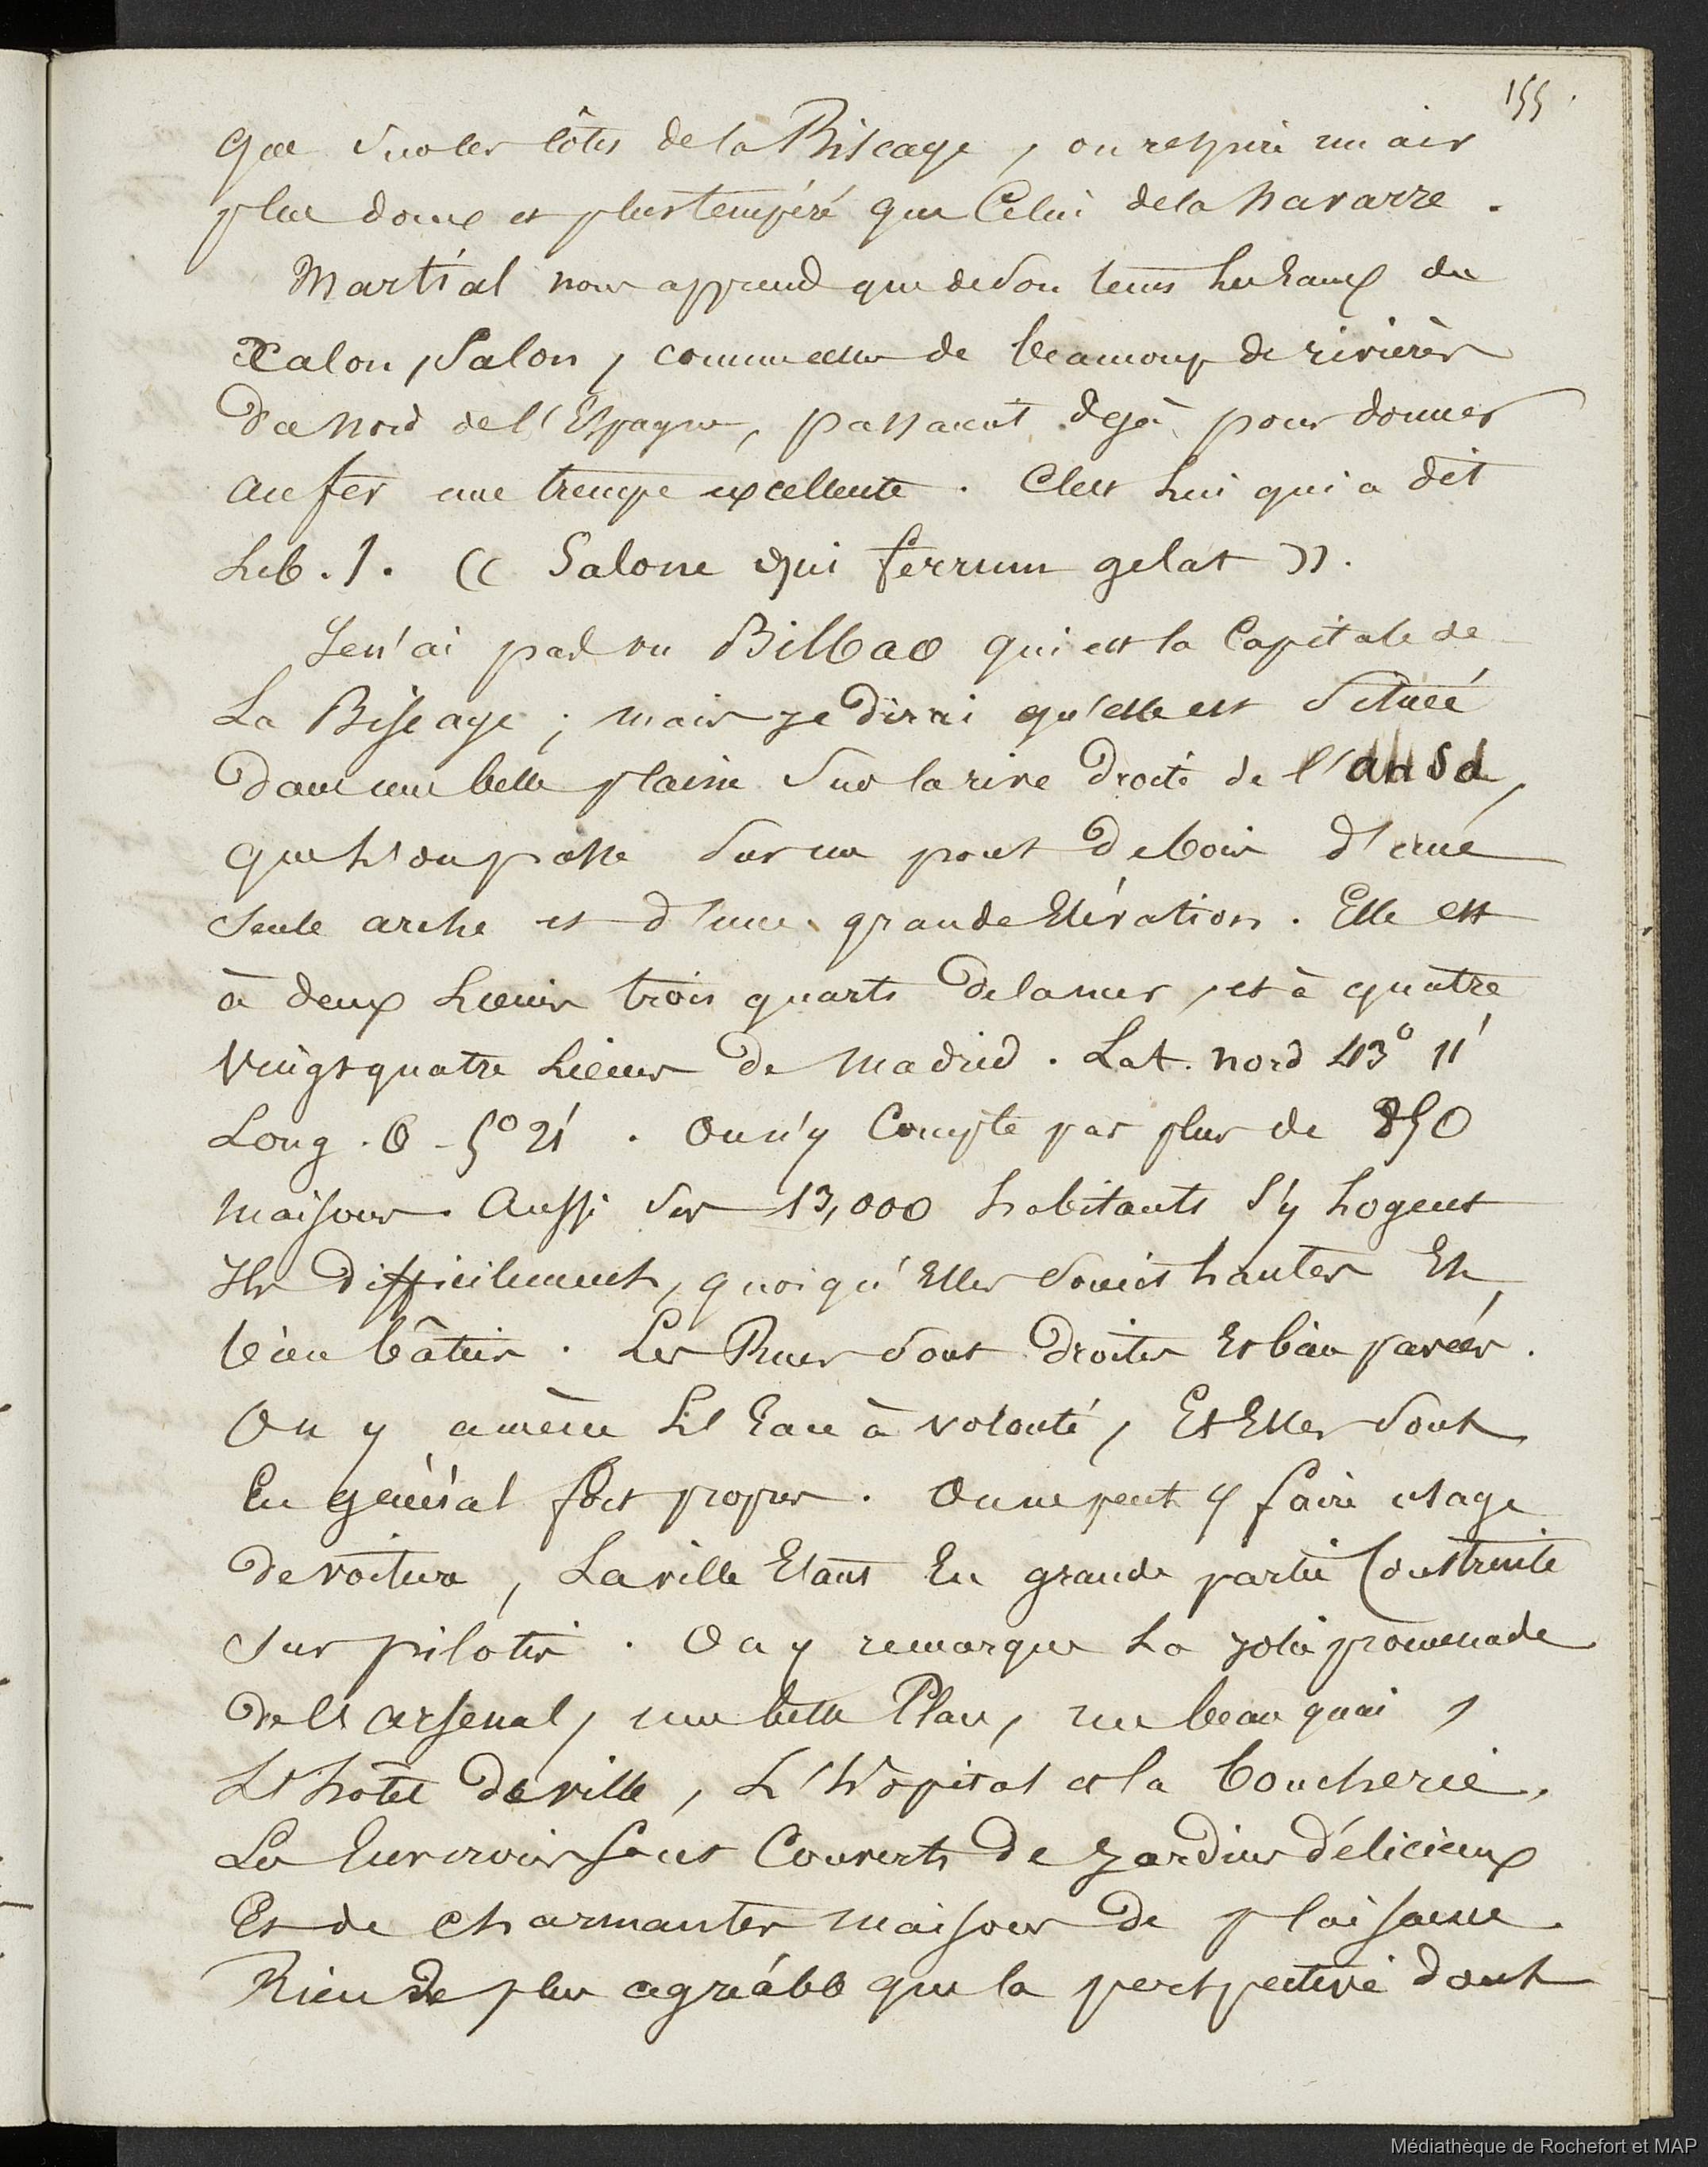 155.
que sur les côtes de la Biscaye, on respire un air
plus doux et plus tempéré que Celui de la Navarre.
Martial nous apprend que de son tems les Eaux du
Xalon, Salon, comme celles de beaucoup de rivières
du Nord de l'Espagne, passaient dejà pour donner
au fer une trempe excellente. C'est Lui qui a dit
Lib. 1. (( Salone qui ferrum gelat )).
Je n'ai pas vu Bilbao qui est la Capitale de
La Biscaye; mais je dirai qu'elle est Située
dans une belle plaine Sur la rive droite de l'ansa,
que L'on passe Sur un pont de bois d'une
Seule arche et d'une grande Elévation. Elle est
à deux Lieues trois quarts de la mer, et à quatre
Vingt quatre Lieues de Madrid. Lat. nord 43° 11'
Long. O - 5° 21'. On n'y Compte pas plus de 850
maisons. Aussi Ses 13,000 habitants S'y Logent
Ils difficilement, quoiqu'Elles Soient hautes Et
bien bâties. Les Rues Sont droites Et bien pavées.
On y amène L'Eau à volonté, Et Elles Sont
En général fort propres. On ne peut y faire usage
de voiture, La ville Etant En grande partie Construite
Sur pilotis. On y remarque La jolie promenade
de L'arsenal, une belle Place, un beau quai,
L'hôtel de ville, L'hôpital et la boucherie.
Les Environs Sont Couverts de jardins délicieux
Et de charmantes maisons de plaisance.
Rien de plus agréable que la perspective dont
Médiathèque de Rochefort et MAP